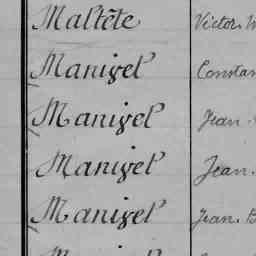 Maltête Victor
Manigel Constan
Manigel Jean
Manigel Jean.
Manigel Jean. B